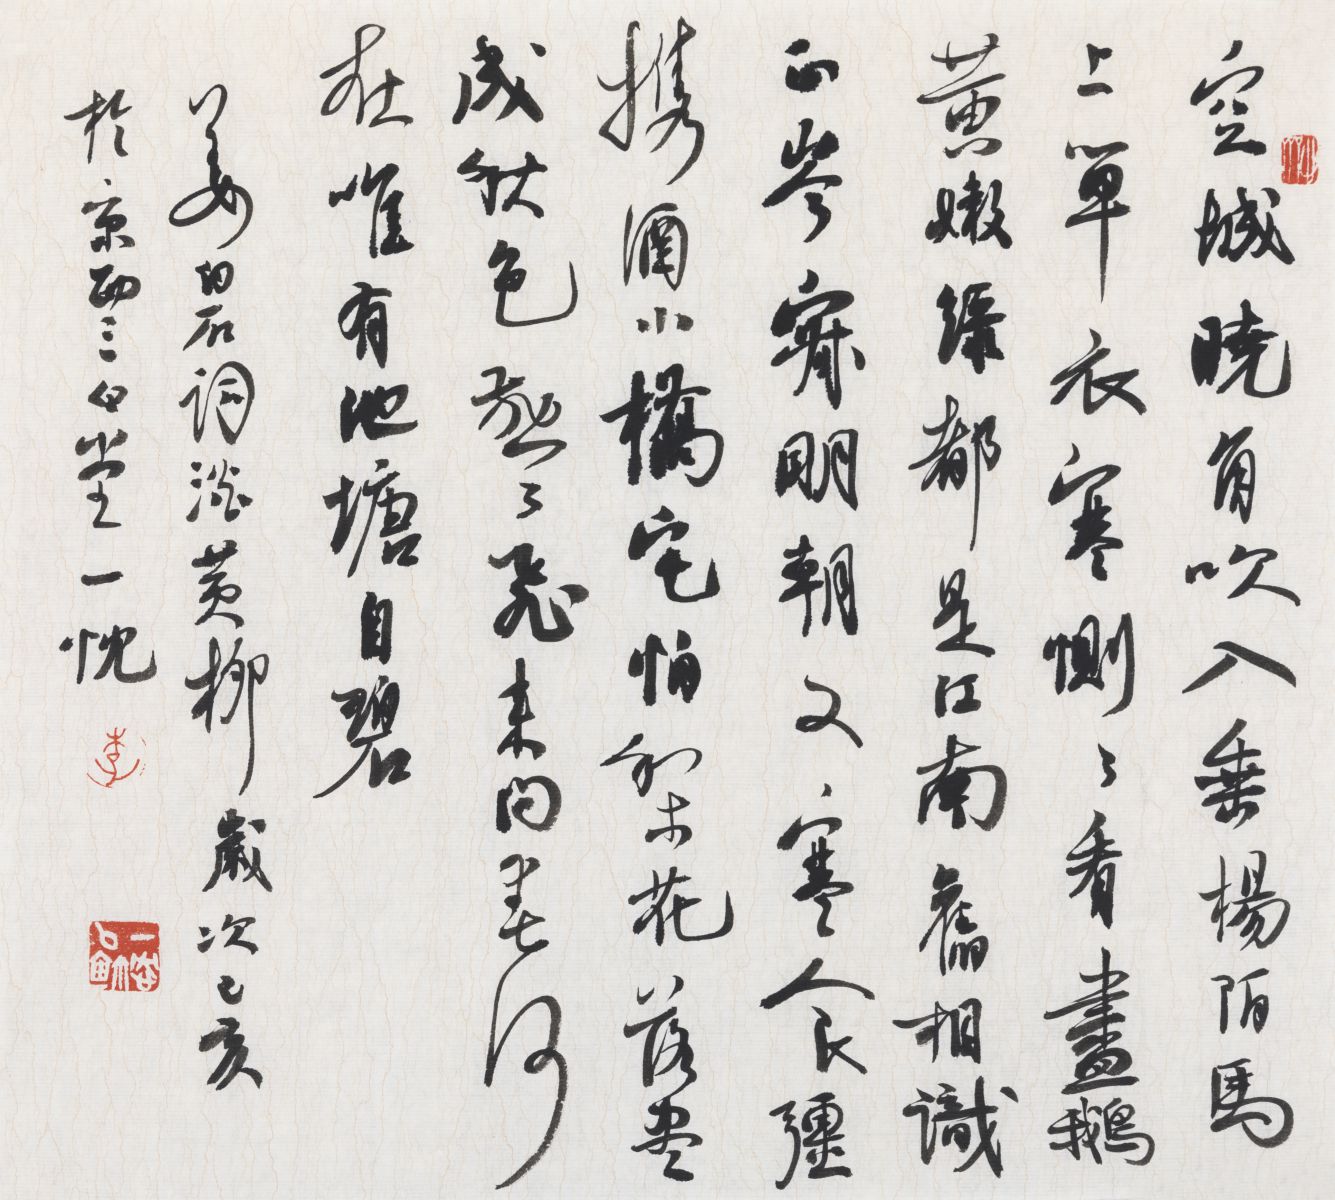 空城曉角吹入垂楊陌馬
上單衣寒惻々看盡鵝
黃嫩綠都是江南舊相識
正岑寂明朝又寒食彊
携酒小橋宅怕梨花落盡
成秋色燕々飛来問春何
在唯有池塘自碧
姜白石詞淡黃柳歲次己亥
於京西三白堂一忱
李